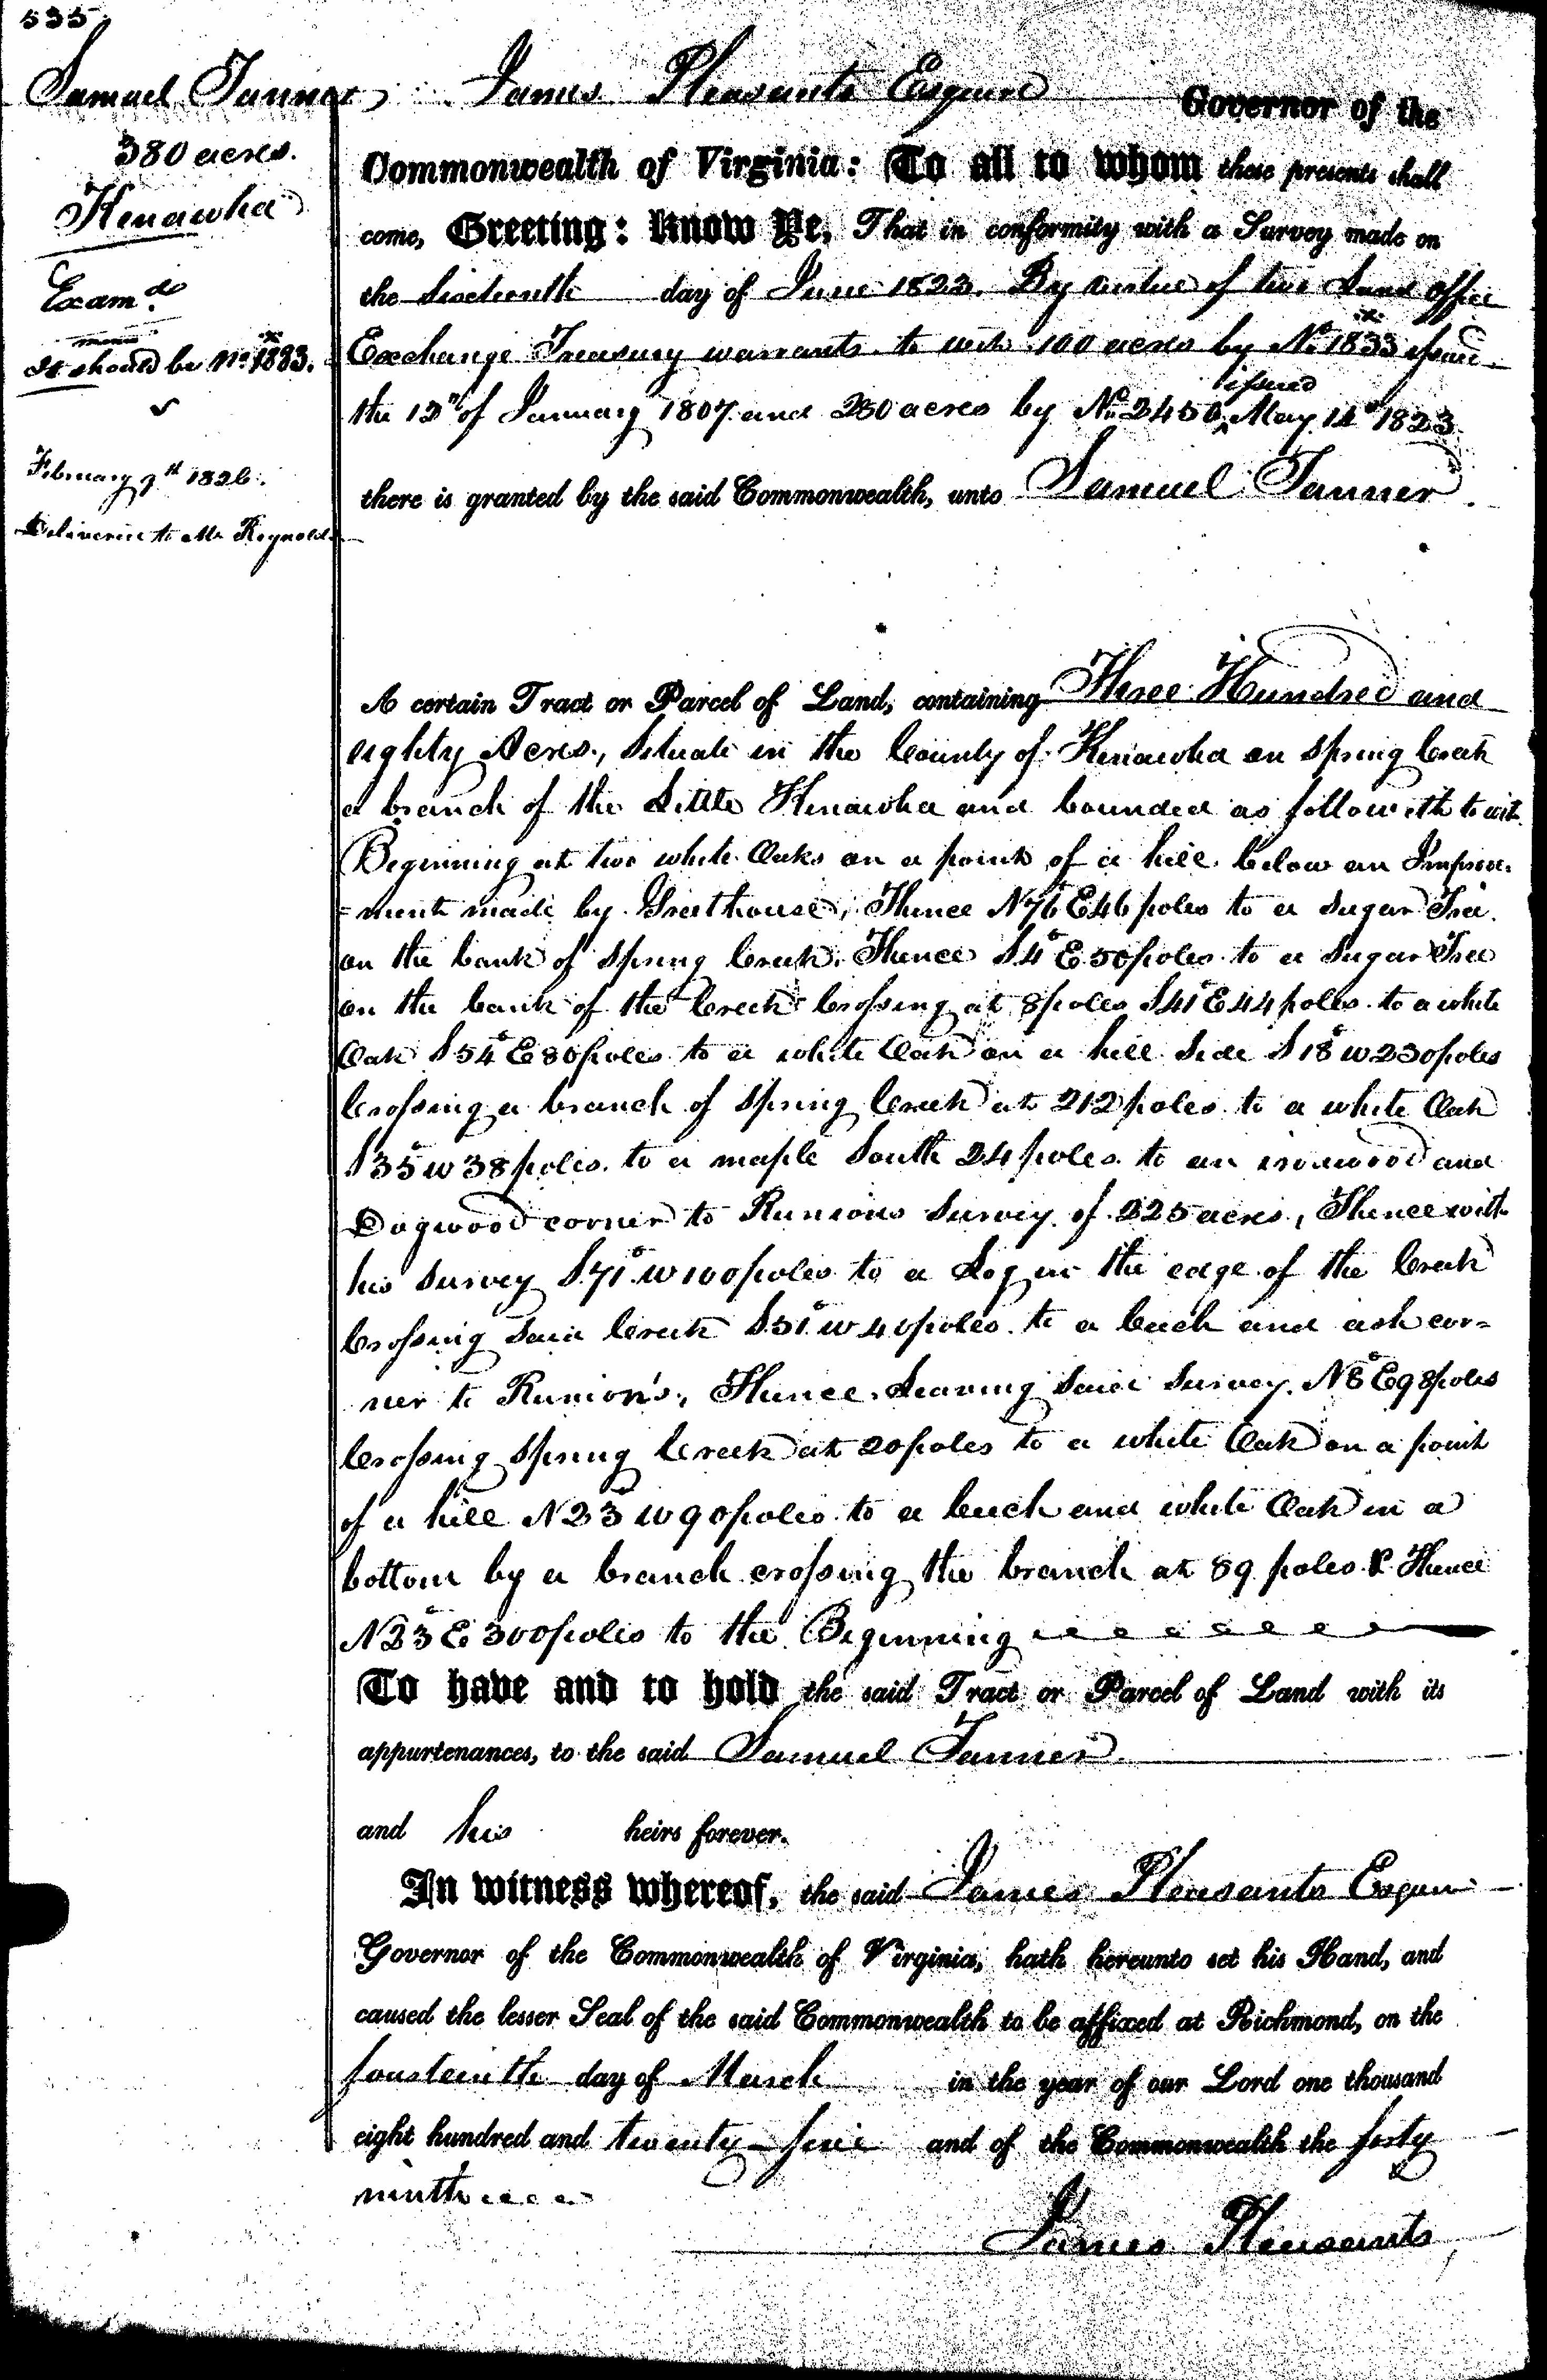 535
Samuel Tanner
380 acres.
Kenawha
Exam.d
It should be No. 1883.
February 9th 1826.
Delivered to Mr Reynolds
James Pleasants Esquire Governor of the
Commonwealth of Virginia: To all to whom these presents shall
come, Greeting: Know Ye, That in conformity with a Survey made on
the Sixteenth day of June 1823. By virtue of two Land office
Exchange Treasury warrants to wit 100 acres by No. 1833 issued
the 13th of January 1807 and 280 acres by No. 2450 issued May 14th 1823
there is granted by the said Commonwealth, unto Samuel Tanner
A certain Tract or Parcel of Land, containing Three Hundred and
eighty Acres, Situate in the County of Kenawha on Spring Creek
a branch of the Little Kenawha and bounded as followeth to wit
Beginning at two white Oaks on a point of a hill below an Improve-
=ment made by Greathouse, Thence N76°E 46 poles to a sugar Tree
on the bank of Spring Creek. Thence S4°E 50 poles to a Sugar Tree
on the bank of the Creek Crossing at 8 poles S41°E 44 poles to a white
Oak S54°E 80 poles to a white Oak on a hill Side S18°W 230 poles
Crossing a branch of Spring Creek at 212 poles to a white Oak
S35°W 38 poles to a maple South 24 poles to an ironwood and
Dogwood corner to Runions Survey of 225 acres, Thence with
his Survey S71°W 100 poles to a Log in the edge of the Creek
Crossing Said Creek S51°W 40 poles to a beech and ash cor=
ner to Runion's, Thence Leaving Said Survey N8°E 98 poles
Crossing Spring Creek at 20 poles to a white Oak on a point
of a hill N23 W 90 poles to a beech and white Oak in a
bottom by a branch crossing the branch at 89 poles & Thence
N23°E 300 poles to the Beginning
To have and to hold the said Tract or Parcel of Land with its
appurtenances, to the said Samuel Tanner
and his heirs forever.
In witness whereof, the said James Pleasants Esquire
Governor of the Commonwealth of Virginia, hath hereunto set his Hand, and
caused the lesser Seal of the said Commonwealth to be affixed at Richmond, on the
fourteenth day of March in the year of our Lord one thousand
eight hundred and twenty-five and of the Commonwealth the forty
ninth
James Pleasants